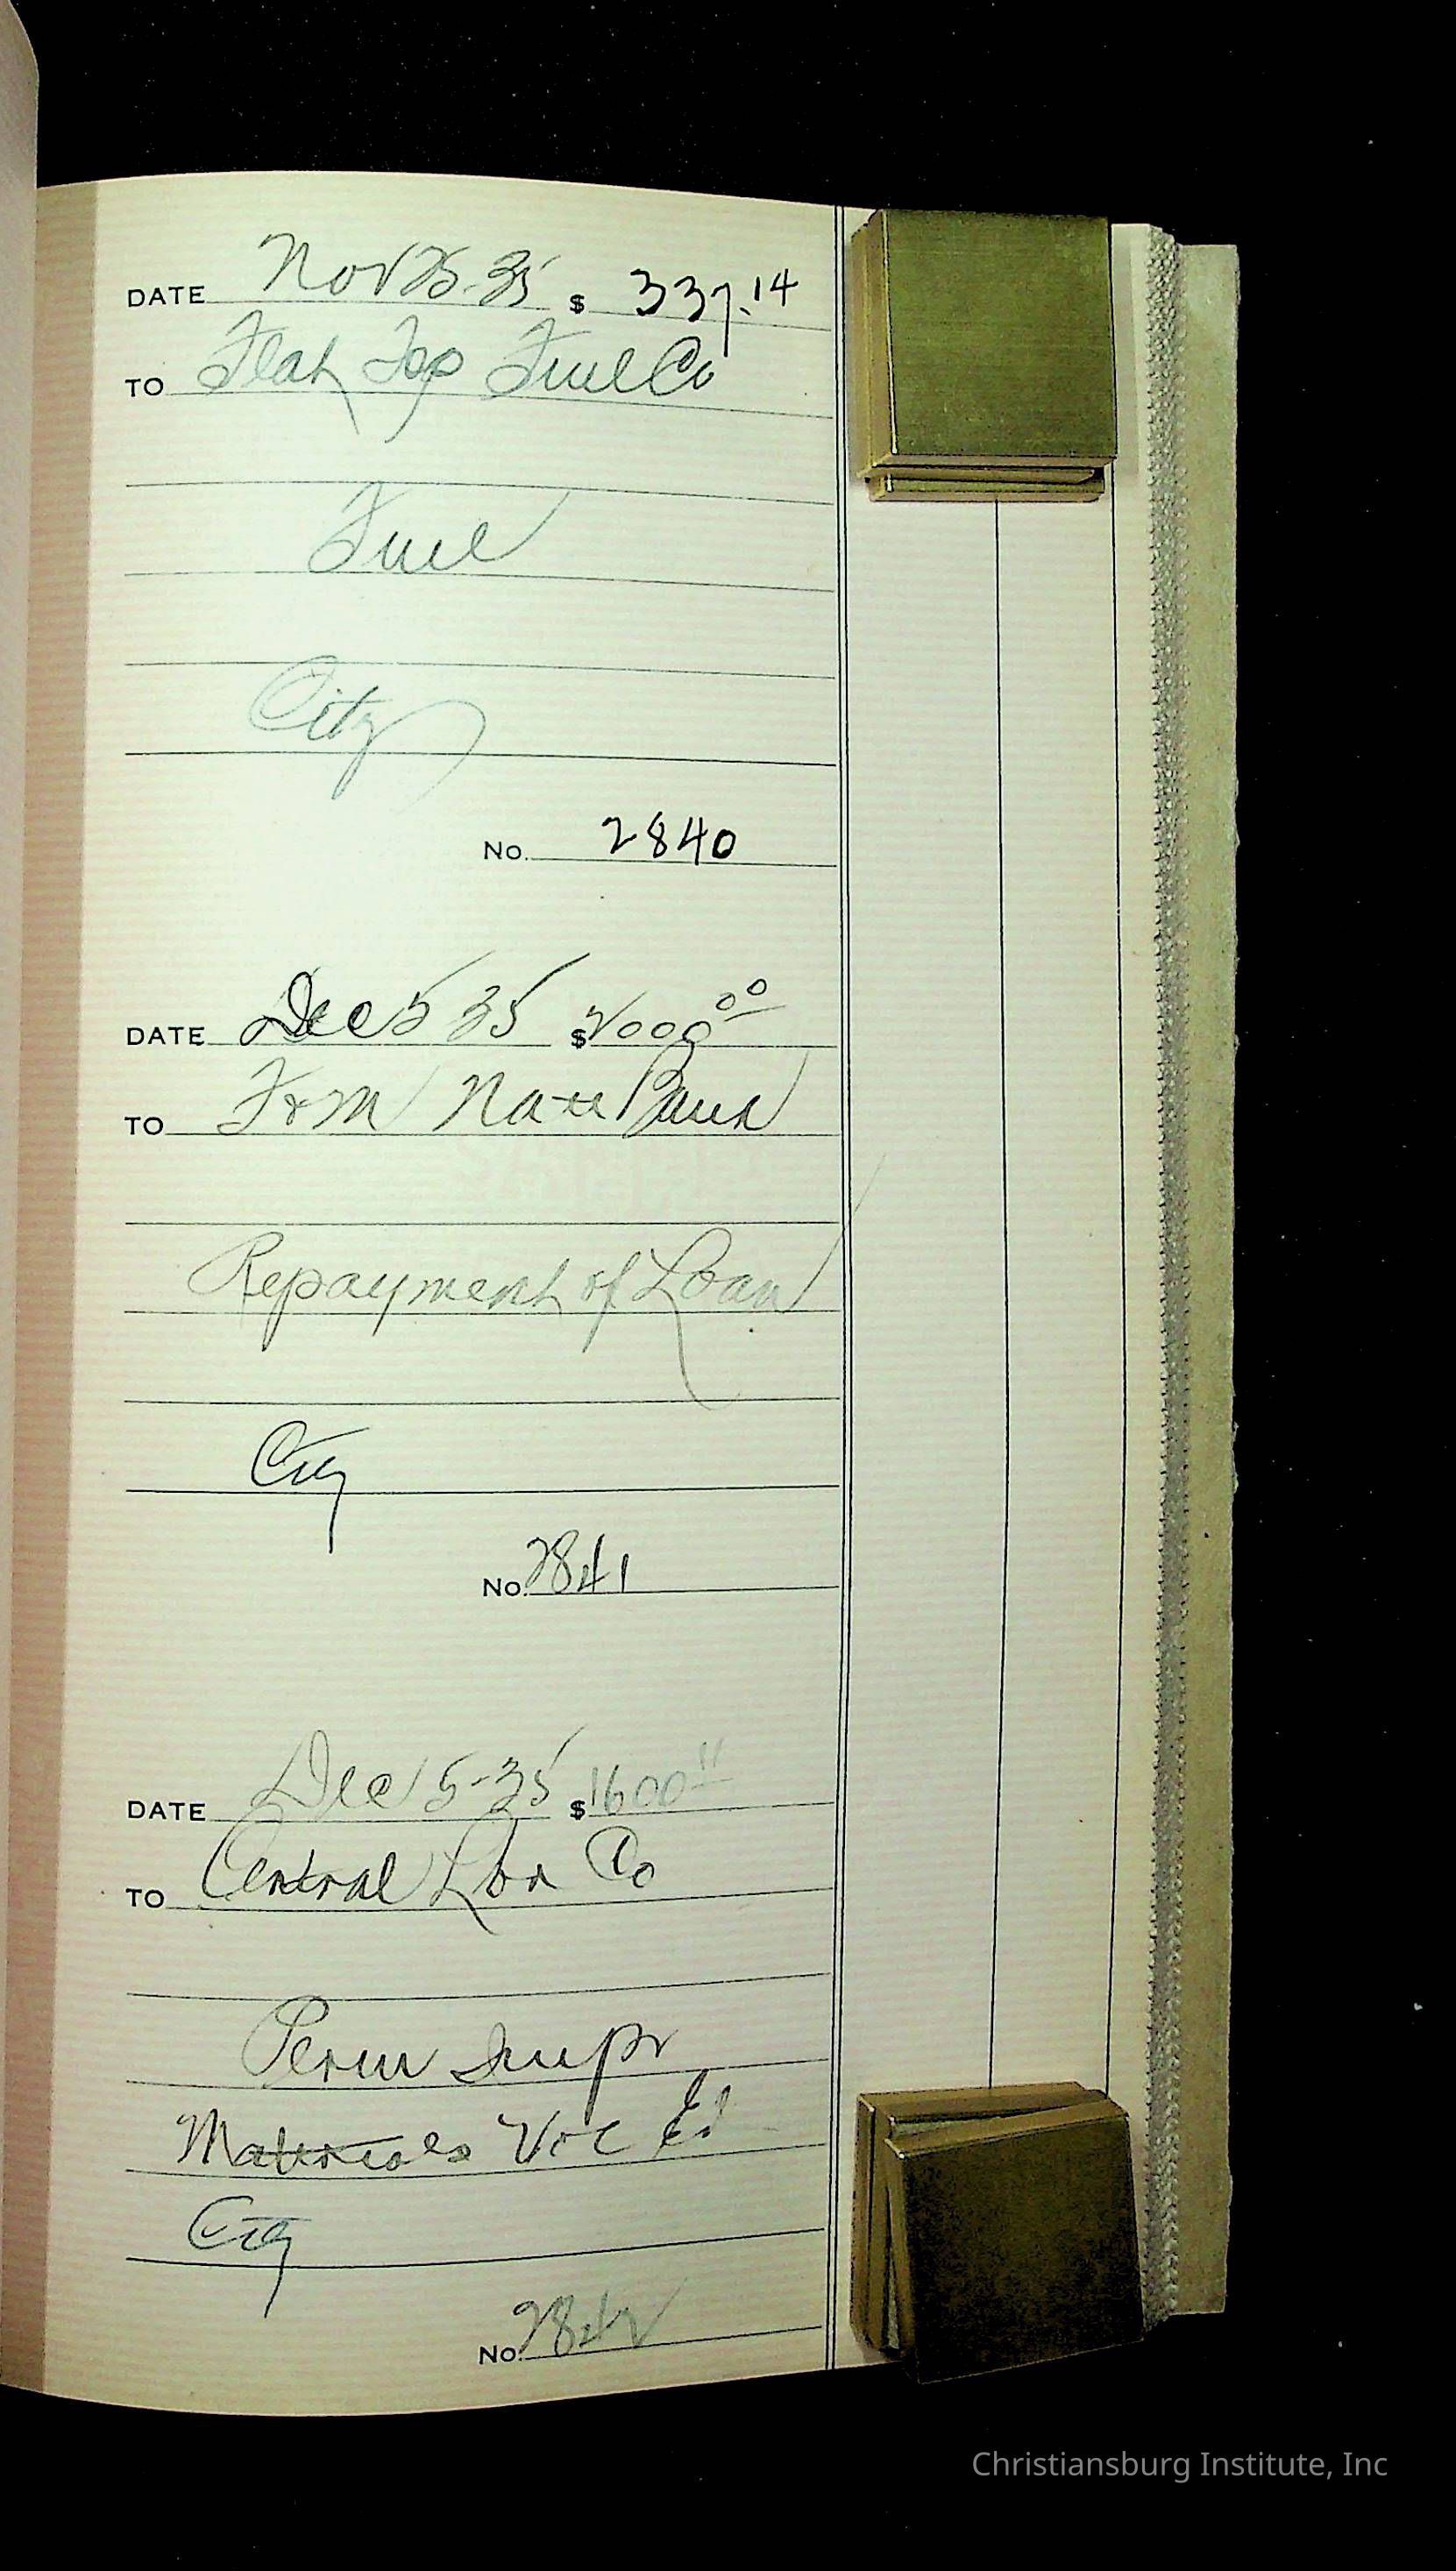 DATE Nov 25-35 $ 337.14
TO Flat Top Fuel Co
Fuel
City
No. 2840
DATE Dec 5 35 $ 2000 00
TO Natl Bank
Repayment of Loan
City
No. 2841
DATE Dec 5-35 $ 1600
TO Central Co
Perm Impr
Materials Voc Ed
City
No. 2842
Christiansburg Institute, Inc